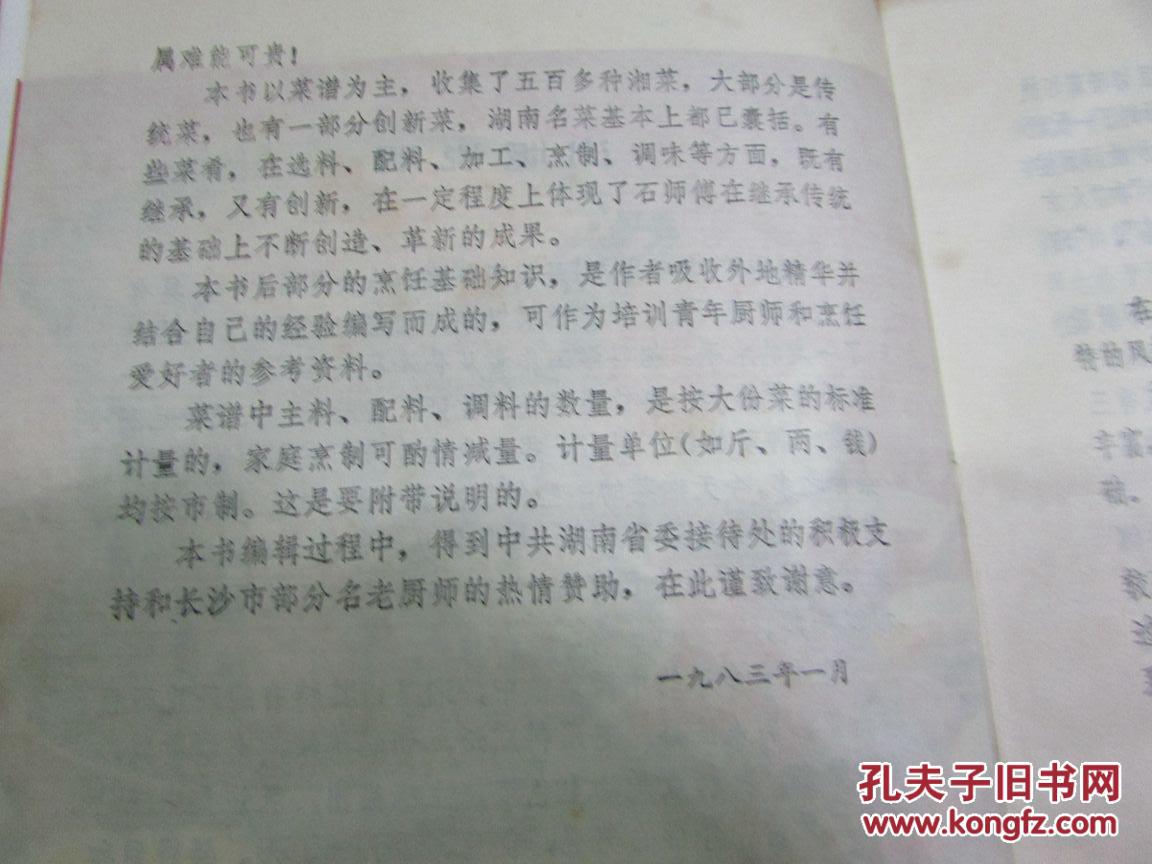 属难能可贵！
本书以菜谱为主，收集了五百多种湘菜，大部分是传
统菜，也有一部分创新菜，湖南名菜基本上都已囊括。有
些菜肴，在选料、配料、加工、烹制、调味等方面，既有
继承，又有创新，在一定程度上体现了石师傅在继承传统
的基础上不断创造、革新的成果。
本书后部分的烹饪基础知识，是作者吸收外地精华并
结合自己的经验编写而成的，可作为培训青年厨师和烹饪
爱好者的参考资料。
菜谱中主料、配料、调料的数量，是按大份菜的标准
计量的，家庭烹制可酌情减量。计量单位(如斤、两、钱)
均按市制。这是要附带说明的。
本书编辑过程中，得到中共湖南省委接待处的积极支
持和长沙市部分名老厨师的热情赞助，在此谨致谢意。
一九八三年一月
在
特的风
三
辛
础。
孔夫子旧书网
www.kongfz.com